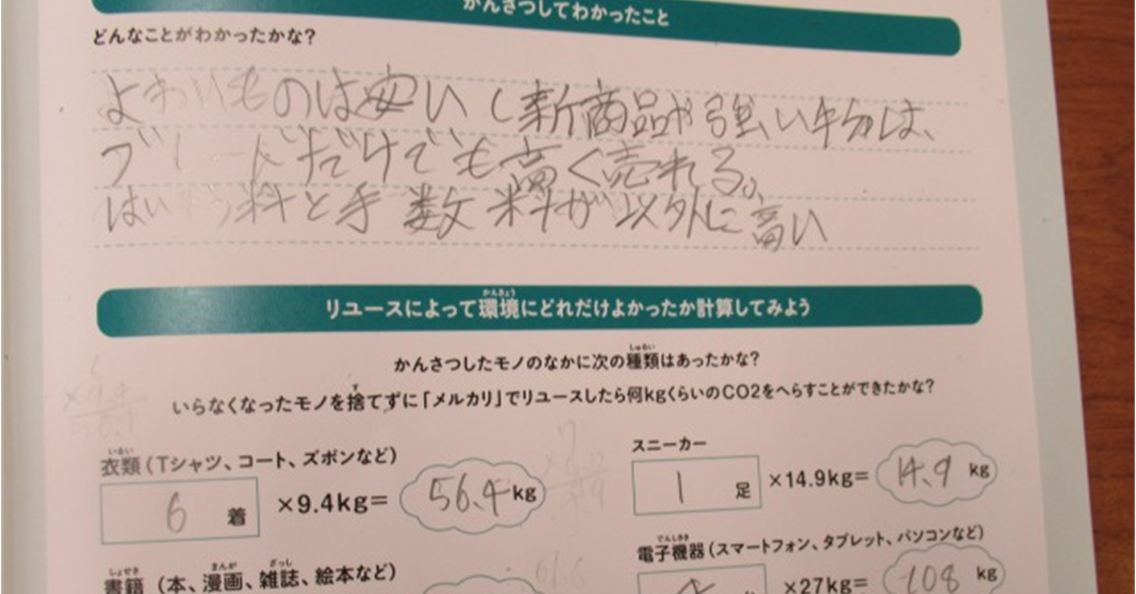 かんさつしてわかったこと
どんなことがわかったかな?
よわいものは安いし新商品や強い物は、
ブレードだけでも高く売れる。
はいそう料と手数料が以外に高い
リユースによって環境にどれだけよかったか計算してみよう
かんさつしたモノのなかに次の種類はあったかな?
いらなくなったモノを捨てずに「メルカリ」でリユースしたら何kgくらいのCO2をへらすことができたかな?
衣類(Tシャツ、コート、ズボンなど)
6着 ×9.4kg= 56.4kg
スニーカー
1足 ×14.9kg= 14.9kg
書籍(本、漫画、雑誌、絵本など)
電子機器(スマートフォン、タブレット、パソコンなど)
×27kg= 108kg